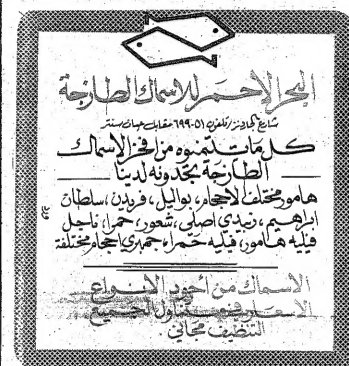 البحر الأحمر للأسماك الطازجة
شارع الجاردنز / تلفون ٦٩٩٠٥١ مقابل حياة سنتر
كل ما تتمنوه من افخر الاسماك
الطازجة تجدونه لدينا
هامور مختلف الاحجام، بواليل، فريدن، سلطان
ابراهيم، زبيدي اصلي، شعور، حمرا، ناجل
فيليه هامور، فيليه حمرا، جمبري احجام مختلفة
الاسماك من أجود الانواع
الاسعار في متناول الجميع
التنظيف مجاني